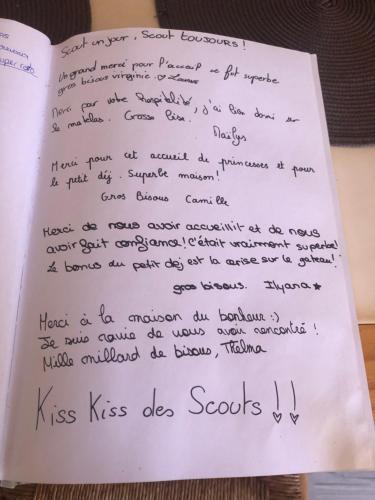 Scout un jour, Scout toujours !
Un grand merci pour l'accueil ce fut superbe
gros bisous virginie.
Merci par votre hospitalité, j'ai bien dormi sur
le matelas. Grosse bise.
Maïlys
Merci pour cet accueil de princesses et pour
le petit déj. Superbe maison !
Gros Bisous Camille
Merci de nous avoir accueillit et de nous
avoir fait confiance ! C'était vraiment superbe !
Le bonus du petit dej est la cerise sur le gateau !
gros bisous. Ilyana
Merci à la maison du bonheur :)
Je suis ravie de vous avoir rencontré !
Mille millard de bisous, Thelma
Kiss Kiss des Scouts !!